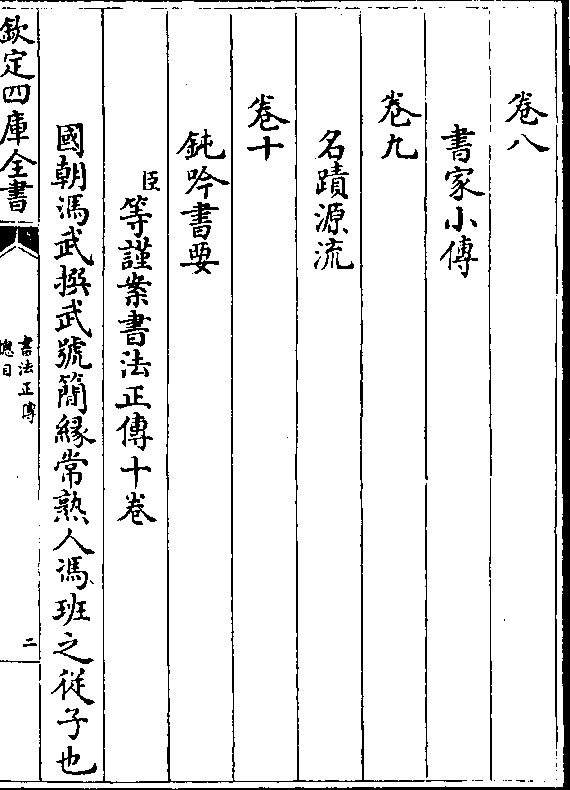 卷八
書家小傳
卷九
名蹟源流
卷十
鈍吟書要
臣等謹案書法正傳十卷
國朝馮武撰武號簡緣常熟人馮班之從子也
欽定四庫全書
書法正傳
總目
二